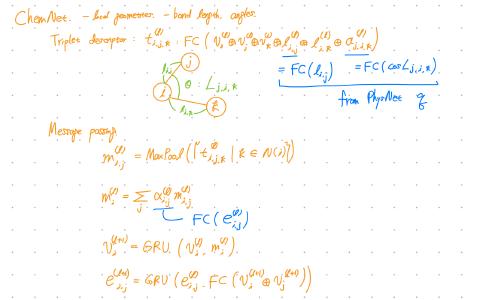 ChemNet. - local geometries. - bond length, angles.
Triplet descriptor : t_{i,j,k}^{(l)} : FC ( v_i^{(l)} ⊕ v_j^{(l)} ⊕ v_k^{(l)} ⊕ l_{i,j}^{(l)} ⊕ l_{i,k}^{(l)} ⊕ a_{j,i,k}^{(l)} )
= FC(l_{i,j}) = FC(cos∠_{j,i,k})
from PhysNet q
j
l_{i,j}
θ : ∠_{j,i,k}
i
l_{i,k}
k
Message passing.
m_{i,j}^{(l)} = MaxPool({ t_{i,j,k}^{(l)} | k ∈ N(i) })
m_i^{(l)} = Σ_j α_{i,j}^{(l)} m_{i,j}^{(l)}
FC(e_{i,j}^{(l)})
v_i^{(l+1)} = GRU (v_i^{(l)}, m_i^{(l)})
e_{i,j}^{(l+1)} = GRU (e_{i,j}^{(l)}, FC (v_i^{(l+1)} ⊕ v_j^{(l+1)}))